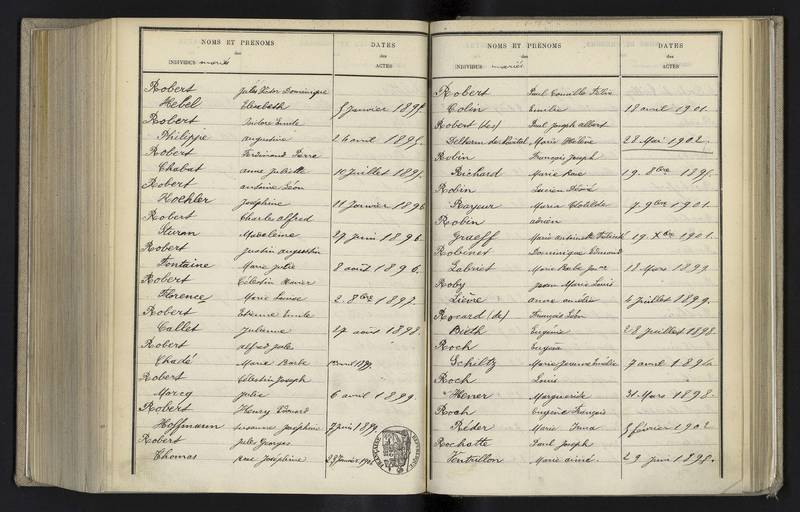 NOMS ET PRÉNOMS DATES
des des
INDIVIDUS mariés ACTES
Robert Jules Victor Dominique
Hebel Elisabeth 5 Janvier 1895.
Robert Isidore Emile
Philippe augustine 26 avril 1895.
Robert Ferdinand Pierre
Chabat anne Juliette 10 Juillet 1895.
Robert antoine Léon
Hoehler Joséphine 11 Janvier 1896
Robert Charles alfred
Sturan Madeleine 27 Juin 1896.
Robert Justin augustin
Fontaine Marie Julie 8 août 1896.
Robert Célestin Xavier
Florence Marie Louise 2. 8bre 1897.
Robert Etienne Emile
Callet Julienne 27 août 1898
Robert alfred Jules
Chadé Marie Barbe avril 1899.
Robert Célestin Joseph
Marcq Julie 6 avril 1899.
Robert Henry Edouard
Hoffmann Susanne Joséphine 7 Juin 1899
Robert Jules Georges
Thomas Rose Joséphine 28 Janvier
NOMS ET PRÉNOMS DATES
des des
INDIVIDUS mariés ACTES
Robert Paul Camille Félix
Colin Emilie 18 avril 1901.
Robert (des) Paul Joseph albert
Marie Hélène 28 Mai 1902.
Robin François Joseph
Richard Marie Rose 19. 8bre 1895.
Robin Lucien Désiré
Royeur Maria Clotilde 7. 9bre 1901.
Robin adrien
Graeff Marie antoinette 19. Xbre 1901.
Robinet Dominique Edmond
Gabriet Marie Barbe 18 Mars 1899.
Roby Jean Marie Louis
Lièvre anne amélie 4 Juillet 1899.
Rocard (de) François Léon
Bieth Eugénie 28 Juillet 1898.
Roch Eugène
Schiltz Marie Jeanne Emélie 7 avril 1896.
Roch Louis
Hener Marguerite 31 Mars 1898.
Roch Eugène François
Réder Marie Anna 5 février 1902
Rochotte Paul Joseph
Ventrillon Marie aimé. 29 Juin 1898.